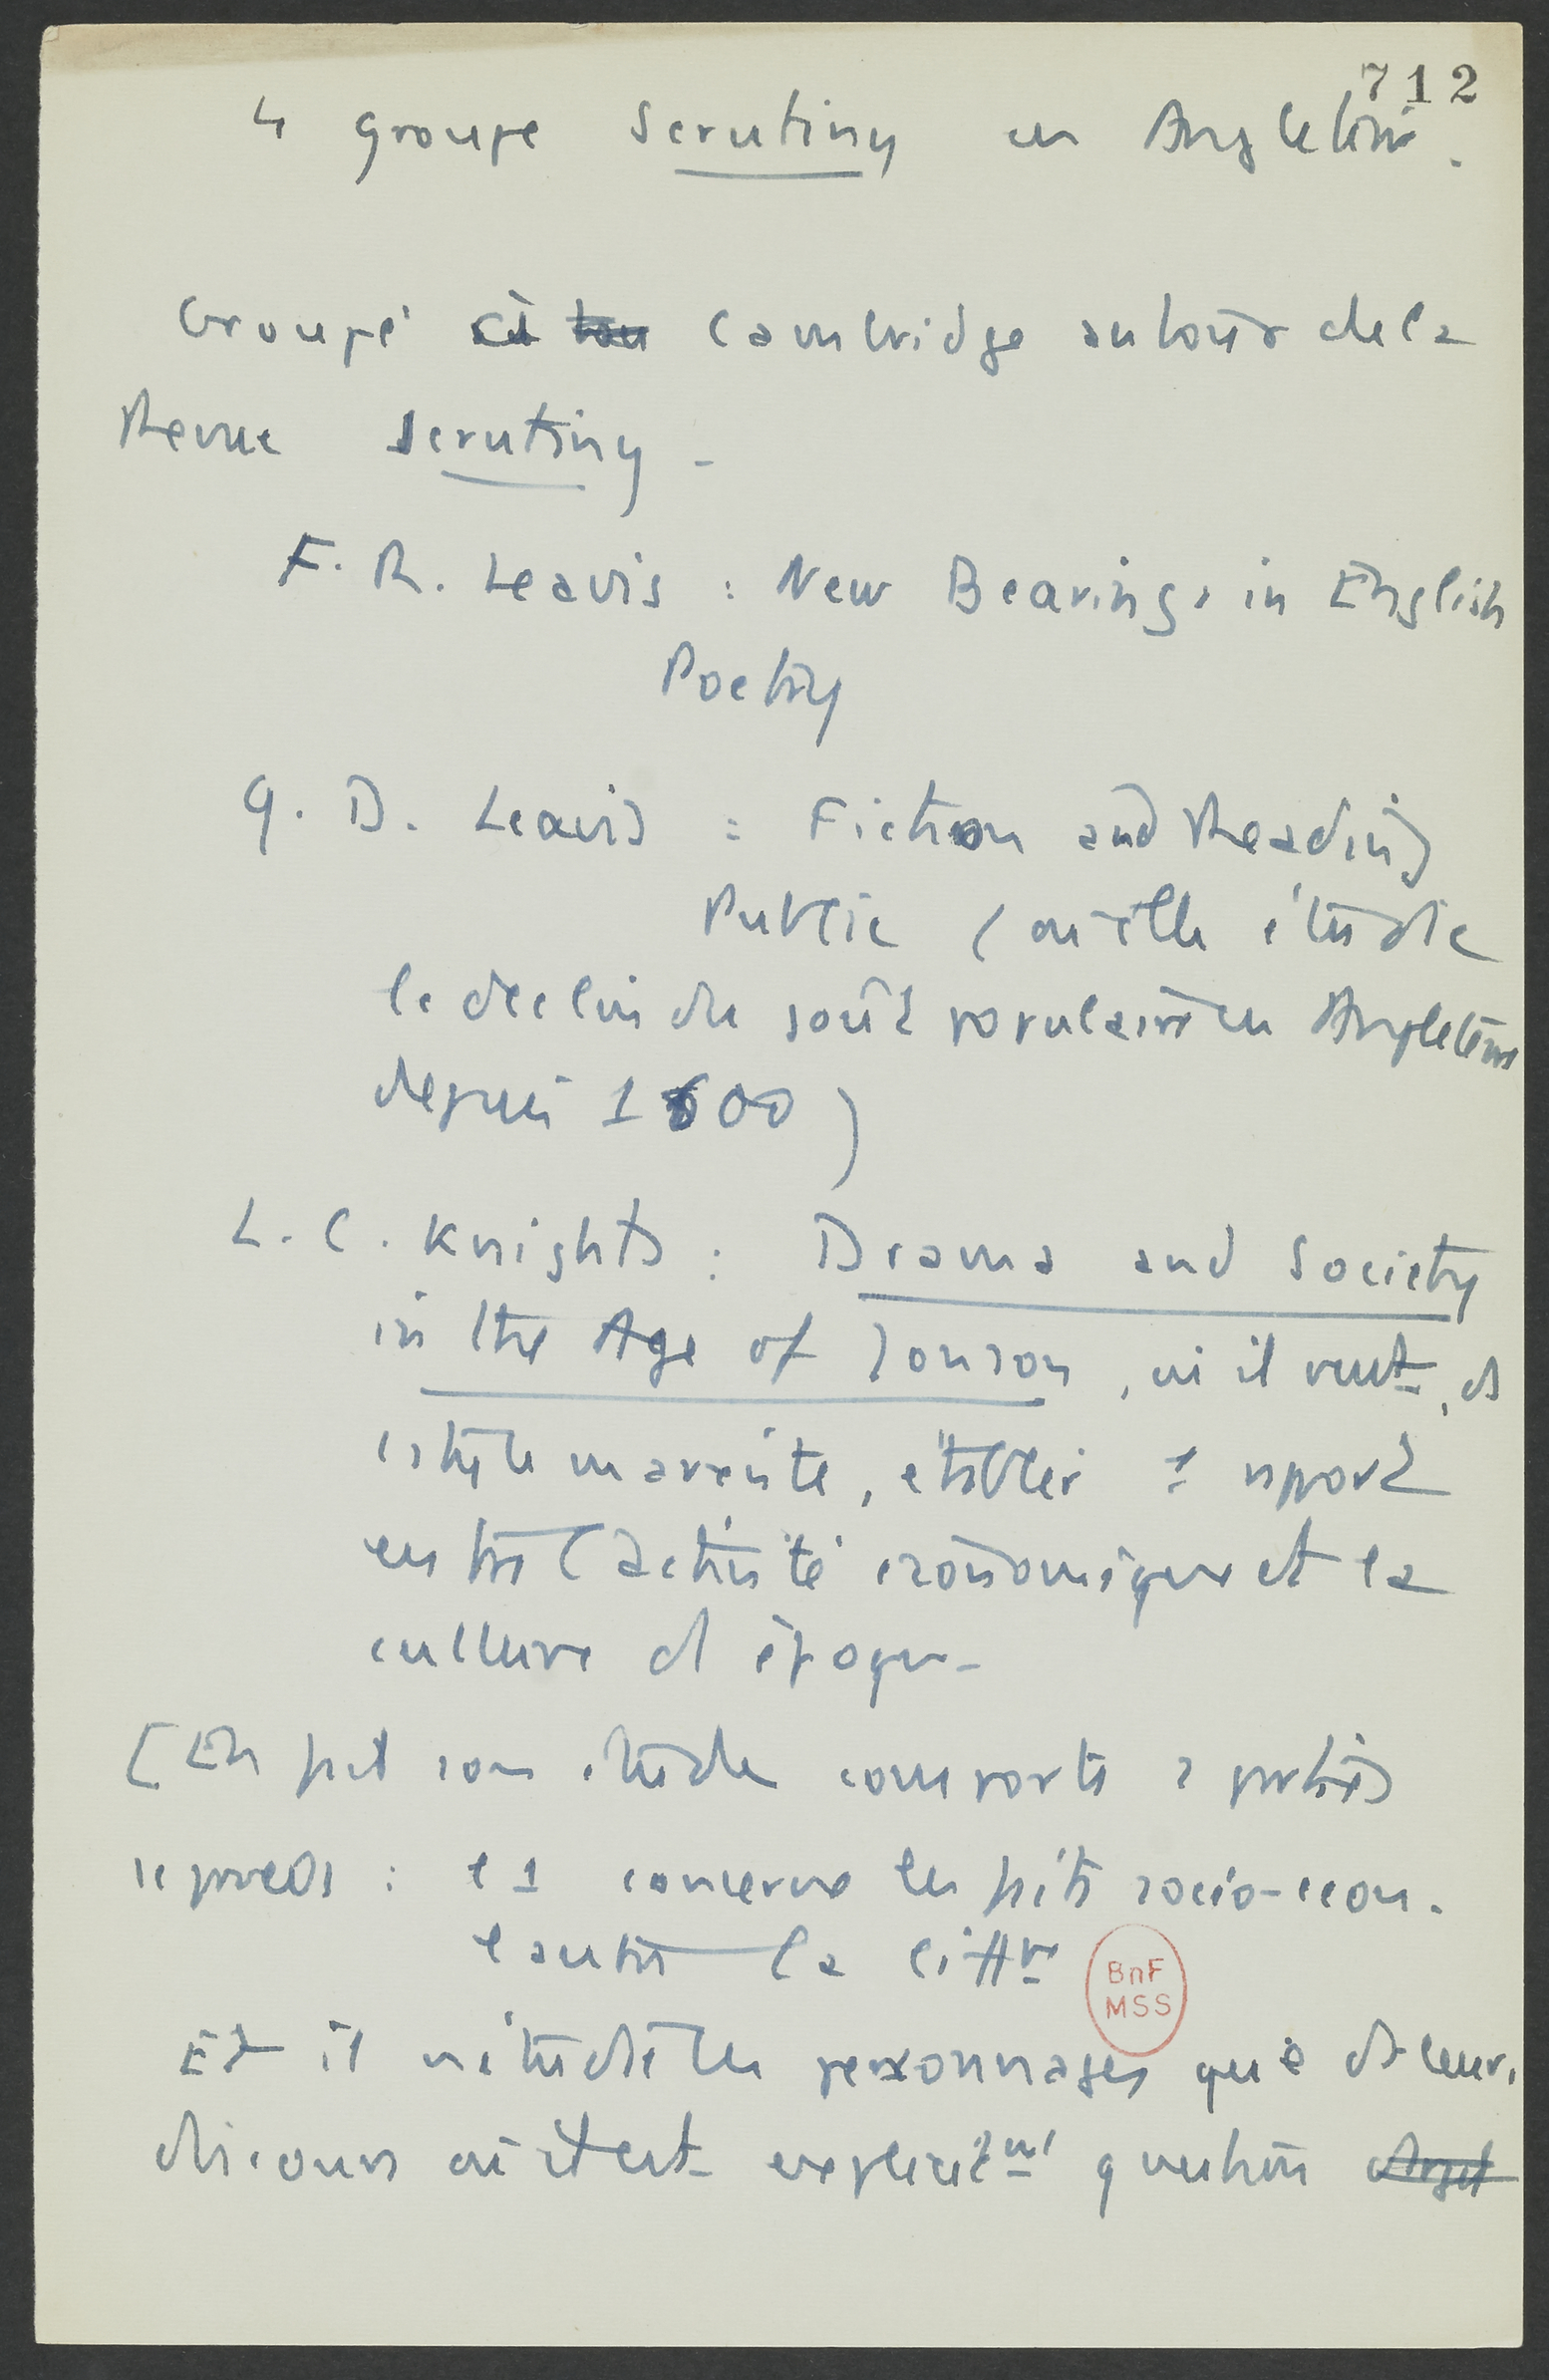 712
Le groupe Scrutiny en Angleterre.
Groupe à Cambridge autour de la
Revue Scrutiny -
F. R. Leavis : New Bearings in English
Poetry
Q. D. Leavis : Fiction and Reading
Public (où elle étudie
le declin du goût populaire en Angleterre
depuis 1600)
L. C. Knights : Drama and Society
in the Age of Jonson, où il veut, ds
style marxiste, établir 1 rapport
entre l'activité économique et la
culture d époque -
[En fait son étude comporte 2 parties
séparées : l 1 concerne les faits socio-econ.
l autre la littre
BnF
MSS
Et il n'étudie les personnages que ds leurs
discours où il est explicitemt question